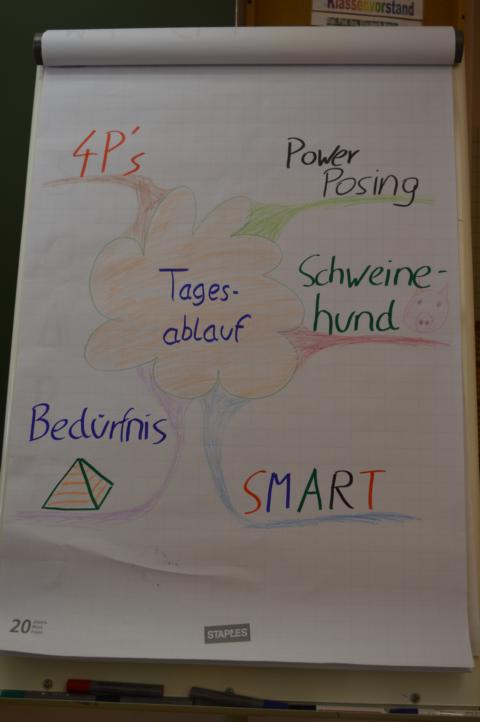 Klassenvorstand
4P's
Power
Posing
Schweine-
hund
Tages-
ablauf
Bedürfnis
SMART
20
STAPLES